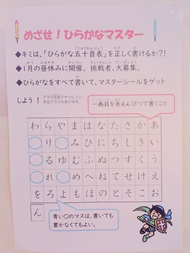 めざせ！ひらがなマスター
◆キミは、「ひらがな五十音表」を正しく書けるか?!
◆1月の昼休みに開催。挑戦者、大募集。
◆ひらがなをすべて書いて、マスターシールをゲット
しよう！
一画目を赤えんぴつで書くこと
あいうえお
かきくけこ
さしすせそ
たちつてと
なにぬねの
はひふへほ
まみむめも
やゆよ
らりるれろ
わを
ん
青い○のマスは、書いても
書かなくてもよい。